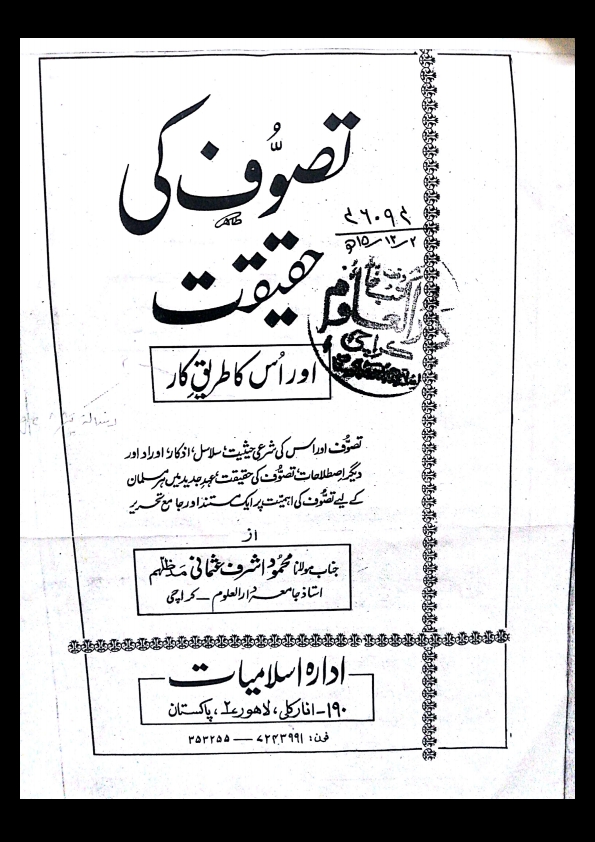 تصوّف کی
حقیقت
اور اُس کا طریقِ کار
تصوّف اور اس کی شرعی حیثیت، سلاسل، اذکار، اوراد اور
دیگر اصطلاحات تصوّف کی حقیقت، عہدِ جدید میں ہر مسلمان
کے لیے تصوّف کی اہمیّت پر ایک مستند اور جامع تحریر
از
جناب مولانا محمود اشرف عثمانی مدظلہم
استاذ جامعہ دارالعلوم – کراچی
ادارہ اسلامیات
۱۹۰- انارکلی، لاہور ۲، پاکستان
فون: ۷۲۴۳۹۹۱ — ۳۵۳۲۵۵